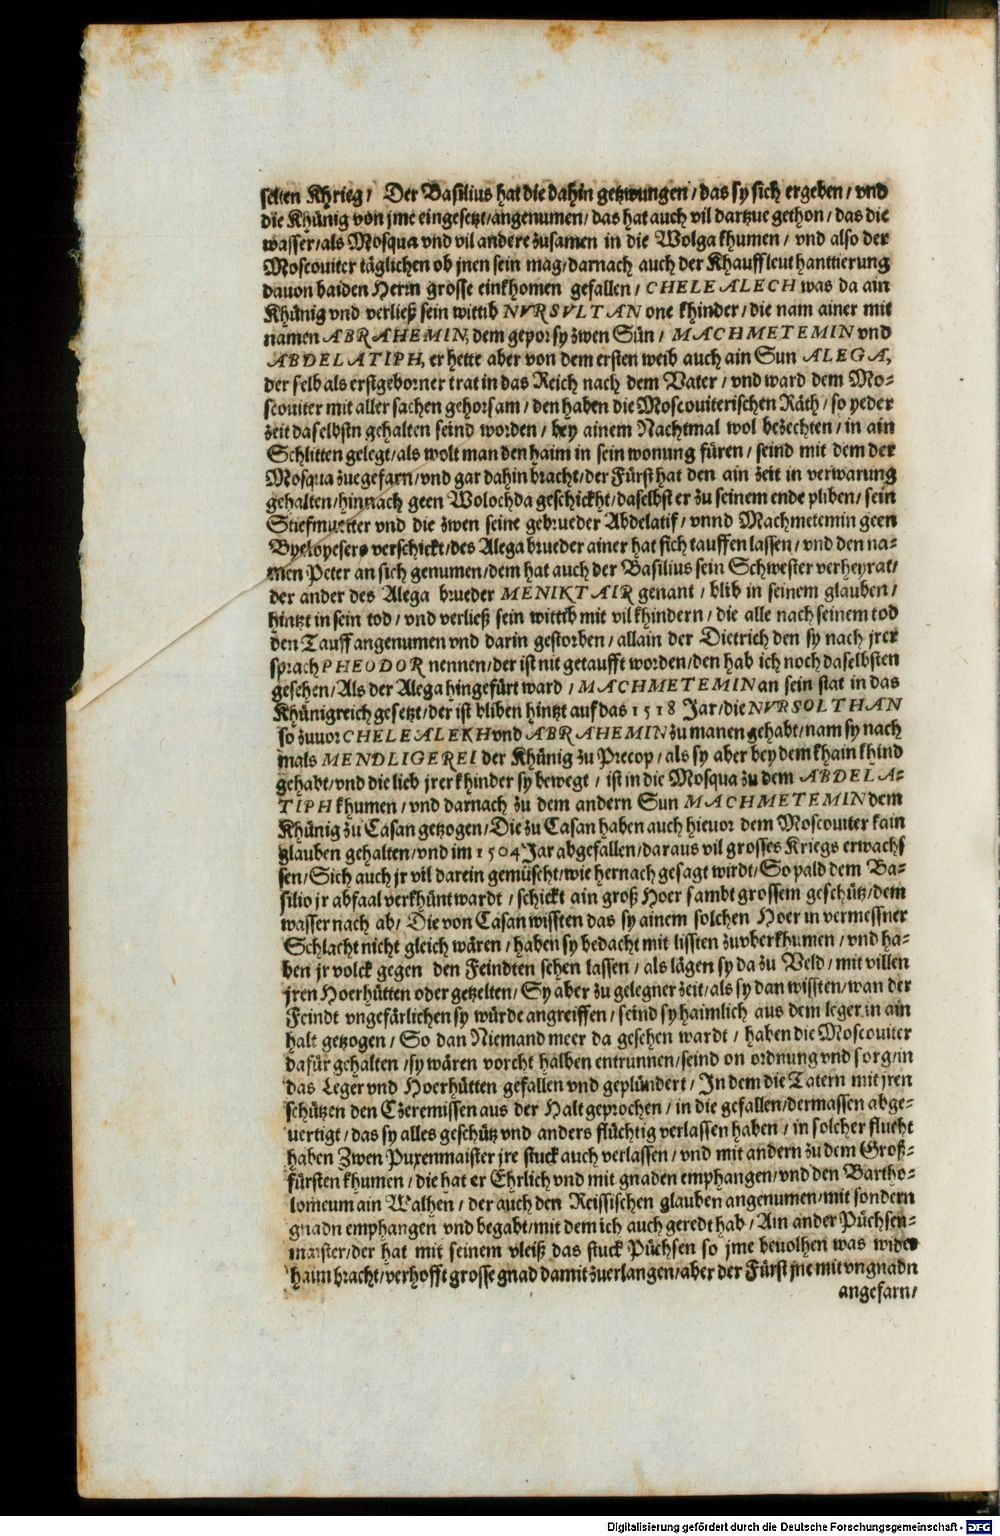 selten Khrieg / Der Basilius hat die dahin getzwungen / das sy sich ergeben / vnd
die Khünig von jme eingesetzt / angenumen / das hat auch vil dartzue gethon / das die
wasser / als Mosqua vnd vil andere zusamen in die Wolga khumen / vnd also der
Moscouiter täglichen ob jnen sein mag / darnach auch der Khauffleut hanttierung
dauon baiden Herrn grosse einkhomen gefallen / CHELEALECH was da ain
Khünig vnd verließ sein wittib NVRSVLTAN one khinder / die nam ainer mit
namen ABRAHEMIN, dem gepor sy zwen Sün / MACHMETEMIN vnd
ABDELATIPH, er hette aber von dem ersten weib auch ain Sun ALEGA,
der selb als erstgeborner trat in das Reich nach dem Vater / vnd ward dem Mo-
scouiter mit aller sachen gehorsam / den haben die Moscouiterischen Räth / so yeder
zeit daselbstn gehalten seind worden / bey ainem Nachtmal wol bezechten / in ain
Schlitten gelegt / als wolt man den haim in sein wonung füren / seind mit dem der
Mosqua zuegefarn / vnd gar dahin bracht / der Fürst hat den ain zeit in verwarung
gehalten / hinnach geen Wolochda geschickht / daselbst er zu seinem ende pliben / sein
Stiefmuetter vnd die zwen seine gebrueder Abdelatif / vnnd Machmetemin geen
Byeloyesero verschickt / des Alega brueder ainer hat sich tauffen lassen / vnd den na-
men Peter an sich genumen / dem hat auch der Basilius sein Schwester verheyrat /
der ander des Alega brueder MENIKTAIR genant / blib in seinem glauben /
hintzt in sein tod / vnd verließ sein wittib mit vil khindern / die alle nach seinem tod
den Tauff angenumen vnd darin gestorben / allain der Dietrich den sy nach jrer
sprach PHEODOR nennen / der ist nit getaufft worden / den hab ich noch daselbsten
gesehen / Als der Alega hingefürt ward / MACHMETEMIN an sein stat in das
Khünigreich gesetzt / der ist bliben hintzt auf das 1518 Jar / die NVRSOLTHAN
so zuuor CHELEALEKH vnd ABRAHEMIN zu manen gehabt / nam sy nach
mals MENDLIGEREI der Khünig zu Precop / als sy aber bey dem khain khind
gehabt / vnd die lieb jrer khinder sy bewegt / ist in die Mosqua zu dem ABDELA-
TIPH khumen / vnd darnach zu dem andern Sun MACHMETEMIN dem
Khünig zu Casan getzogen / Die zu Casan haben auch hieuor dem Moscouiter kain
glauben gehalten / vnd im 1504 Jar abgefallen / daraus vil grosses Kriegs erwachs
sen / Sich auch jr vil darein gemüscht / wie hernach gesagt wirdt / So pald dem Ba-
silio jr abfaal verkhünt wardt / schickt ain groß Hoer sambt grossem geschütz / dem
wasser nach ab / Die von Casan wissten das sy ainem solchen Hoer in vermessner
Schlacht nicht gleich wären / haben sy bedacht mit lissten zuvberkhumen / vnd ha-
ben jr volck gegen den Feindten sehen lassen / als lägen sy da zu Veld / mit villen
jren Hoerhütten oder getzelten / Sy aber zu gelegner zeit / als sy dan wissten / wan der
Feindt vngefärlichen sy würde angreiffen / seind sy haimlich aus dem leger in ain
halt getzogen / So dan Niemand meer da gesehen wardt / haben die Moscouiter
dafür gehalten / sy wären vorcht halben entrunnen / seind on ordnung vnd sorg / in
das Leger vnd Hoerhütten gefallen vnd geplündert / In dem die Tatern mit jren
schützen den Czeremissen aus der Halt geprochen / in die gefallen / dermassen abge-
uertigt / das sy alles geschütz vnd anders flüchtig verlassen haben / in solcher flucht
haben Zwen Puxenmaister jre stuck auch verlassen / vnd mit andern zu dem Groß-
fürsten khumen / die hat er Ehrlich vnd mit gnaden emphangen / vnd den Bartho-
lomeum ain Walhen / der auch den Reissischen glauben angenumen / mit sondern
gnadn emphangen vnd begabt / mit dem ich auch geredt hab / Ain ander Püchsen-
maister / der hat mit seinem vleiß das stuck Püchsen so jme beuolhen was wider
haim bracht / verhofft grosse gnad damit zuerlangen / aber der Fürst jne mit vngnadn
angefarn /
Digitalisierung gefördert durch die Deutsche Forschungsgemeinschaft - DFG